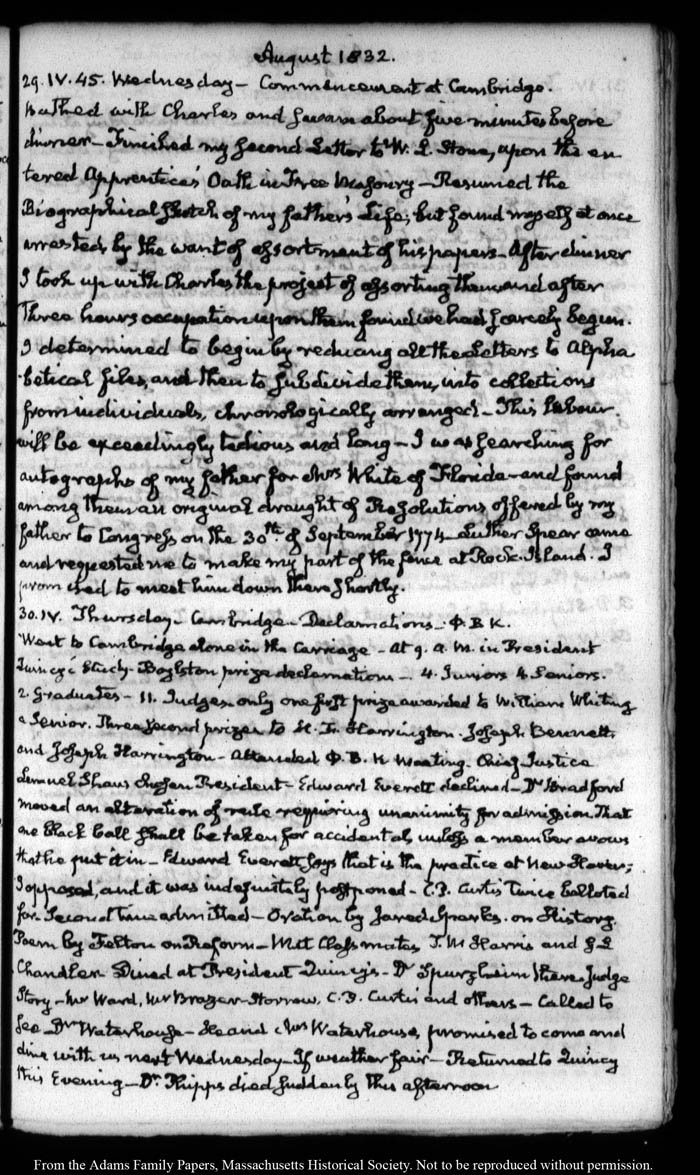 August 1832.
29. IV. 45. Wednesday — Commencement at Cambridge.
Bathed with Charles and swam about five minutes before
dinner — Finished my second Letter to W. L. Stone, upon the en
tered Apprentice's Oath in Free Masonry — Resumed the
Biographical Sketch of my father's Life, but found myself at once
arrested by the want of assortment of his papers — After dinner
I took up with Charles the project of assorting them and after
three hours occupation upon them found we had scarcely begun.
I determined to begin by reducing all the Letters to Alpha
betical files, and then to subdivide them, into collections
from individuals, chronologically arranged — This labour
will be exceedingly tedious and long — I was searching for
autographs of my father for Mrs White of Florida — and found
among them an original draught of Resolutions offered by my
father to Congress on the 30th. of September 1774 — Luther Spear came
and requested me to make my part of the fence at Rock-Island. I
promised to meet him down there shortly.
30. IV. Thursday — Cambridge — Declamations — Φ. B. K.
Went to Cambridge alone in the Carriage — At 9. A. M. in President
Quincy's Study — Boylston prize declamation — 4. Juniors 4. Seniors.
2. Graduates — 11. Judges — only one first prize awarded to William Whiting
a Senior. Three second prizes to H. F. Harrington. Joseph Bennett
and Joseph Harrington — Attended Φ. B. K Meeting. Chief Justice
Lemuel Shaw chosen President — Edward Everett declined — Dr Bradford
moved an alteration of rule requiring unanimity for admission. That
one black ball shall be taken for accidental, unless a member avows
that he put it in — Edward Everett says that is the practice at New Haven;
I opposed, and it was indefinitely postponed — C. P. Curtis twice balloted
for. Second time admitted — Oration by Jared Sparks. on History.
Poem by Felton on Reform — Met Classmates T. M Harris and
Chandler Dined at President Quincy's — Dr Spurzheim there Judge
Story — Mr Ward, Mr Brazer — Storrow, C. P. Curtis and others — Called to
see Dr Waterhouse — He and Mrs Waterhouse, promised to come and
dine with us next Wednesday — If weather fair — Returned to Quincy
this Evening — Dr. Phipps died suddenly this afternoon
From the Adams Family Papers, Massachusetts Historical Society. Not to be reproduced without permission.